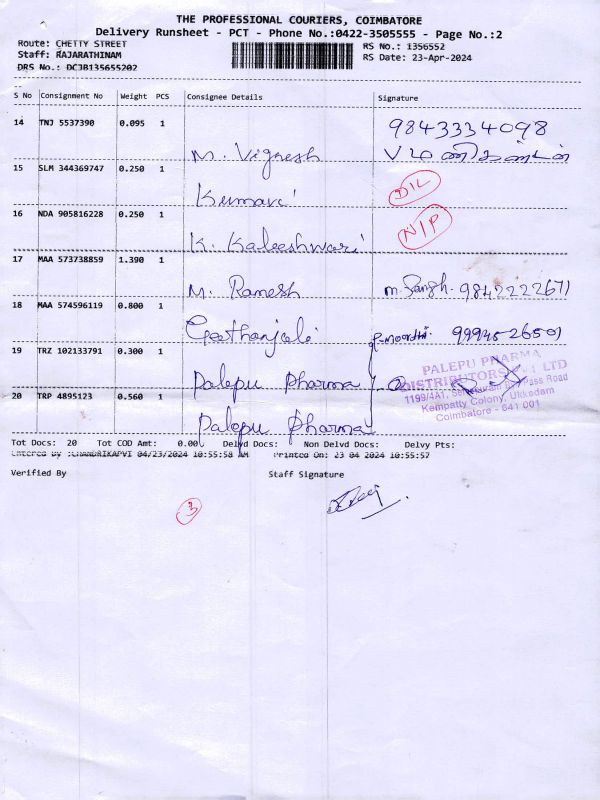 THE PROFESSIONAL COURIERS, COIMBATORE
Delivery Runsheet - PCT - Phone No.:0422-3505555 - Page No.:2
Route: CHETTY STREET
RS No.: 1356552
Staff: RAJARATHINAM
RS Date: 23-Apr-2024
DRS No.: DCJB135655202
S No Consignment No Weight PCS Consignee Details Signature
14 TNJ 5537390 0.095 1 M. Vignesh 9843334098
வ மணிகண்டன்
15 SLM 344369747 0.250 1 Kumari D/L
16 NDA 905816228 0.250 1 K. Kaleeshwari N/P
17 MAA 573738859 1.390 1 M. Ramesh 9842222671
18 MAA 574596119 0.800 1 Geethanjali P. Moorthi 9994526501
19 TRZ 102133791 0.300 1 Palepu Pharma
20 TRP 4895123 0.560 1 Palepu Pharma
PALEPU PHARMA
DISTRIBUTORS LTD
1199/4A1, Bypass Road
Kempatty Colony, Ukkadam
Coimbatore - 641 001
Tot Docs: 20 Tot COD Amt: 0.00 Delvd Docs: Non Delvd Docs: Delvy Pts:
Entered By :CHANDRIKAPVI 04/23/2024 10:55:58 AM Printed On: 23 04 2024 10:55:57
Verified By Staff Signature
3